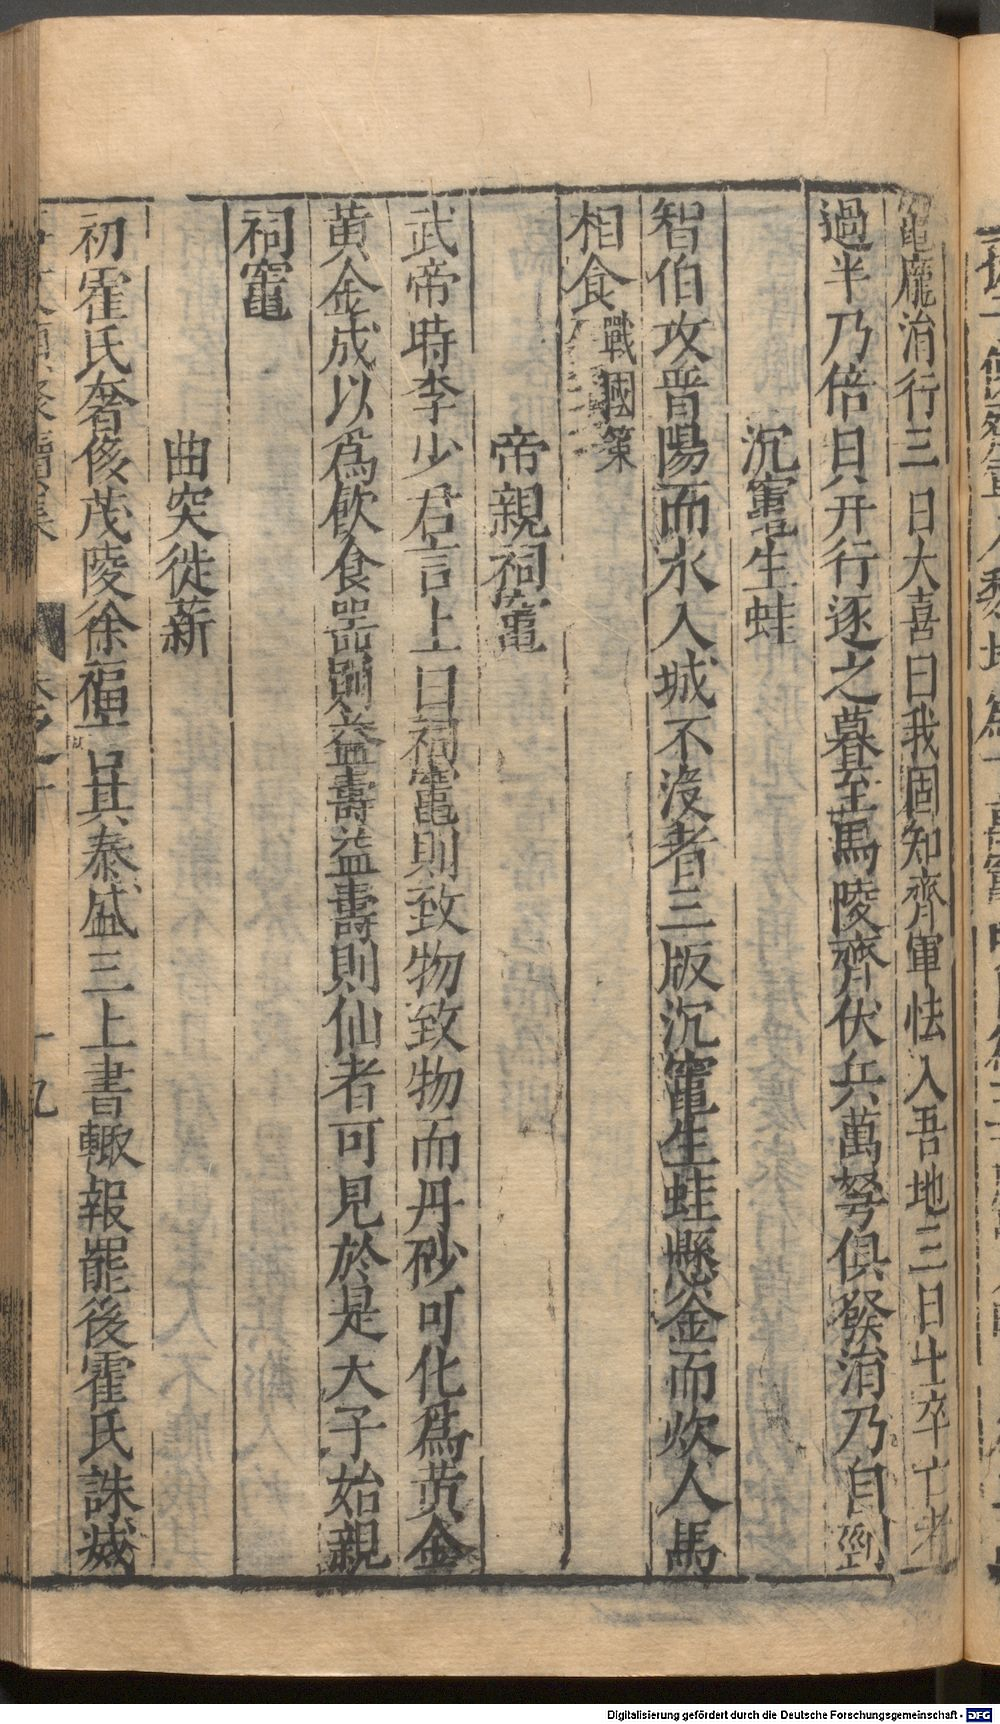 竈龐涓行三日大喜曰我固知齊軍怯入吾地三日士卒亡者
過半乃倍日并行逐之暮至馬陵齊伏兵萬弩俱發涓乃自剄
沉竈生蛙
智伯攻晋陽而水入城不没者三版沉竈生蛙懸金而炊人馬
相食戰國策
帝親祠竈
武帝時李少君言上曰祠竈則致物致物而丹砂可化爲黄金
黄金成以爲飲食器則益壽益壽則仙者可見於是天子始親
祠竈
曲突徙薪
初霍氏奢侈茂陵徐福言其泰盛三上書輙報罷後霍氏誅滅
十九
Digitalisierung gefördert durch die Deutsche Forschungsgemeinschaft - DFG